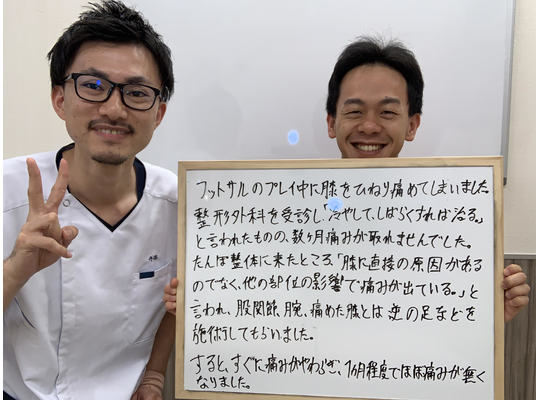 フットサルのプレイ中に膝をひねり痛めてしまいました。
整形外科を受診し、「冷やして、しばらくすれば治る。」
と言われたものの、数ヶ月痛みが取れませんでした。
たんぽ整体に来たところ、「膝に直接の原因がある
のでなく、他の部位の影響で痛みが出ている。」と
言われ、股関節、腕、痛めた膝とは逆の足などを
施術してもらいました。
すると、すぐに痛みがやわらぎ、1ヶ月程度でほぼ痛みが無く
なりました。